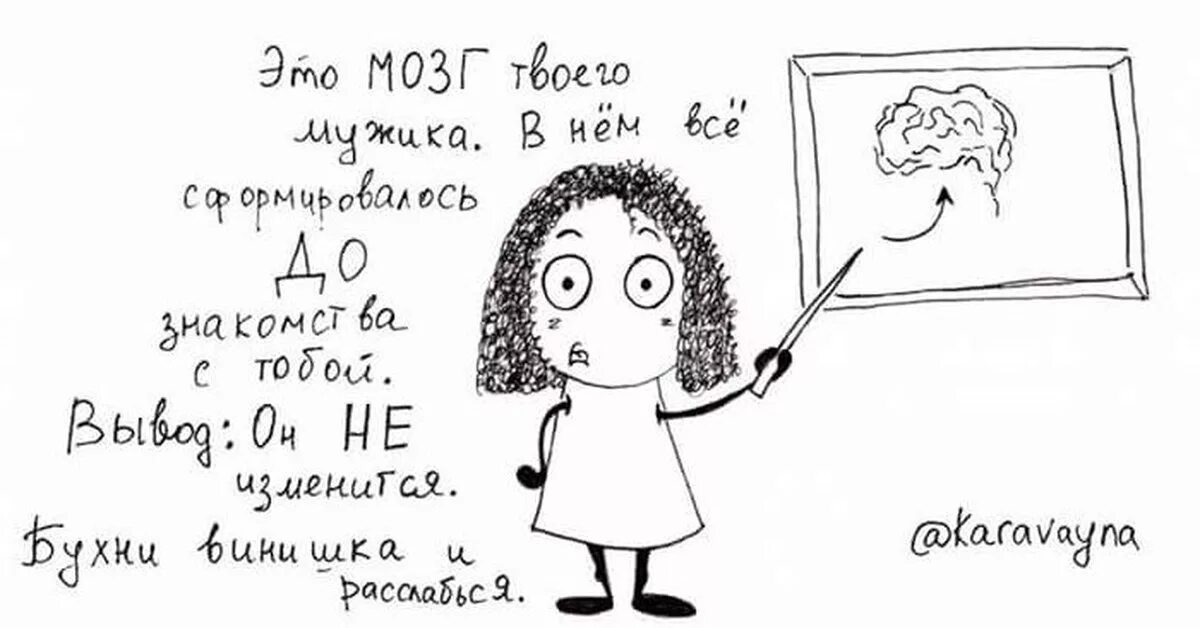 Это МОЗГ твоего
мужика. В нём всё
сформировалось
ДО
знакомства
с тобой.
Вывод: Он НЕ
изменится.
Бухни винишка и
расслабься.
@karavayna